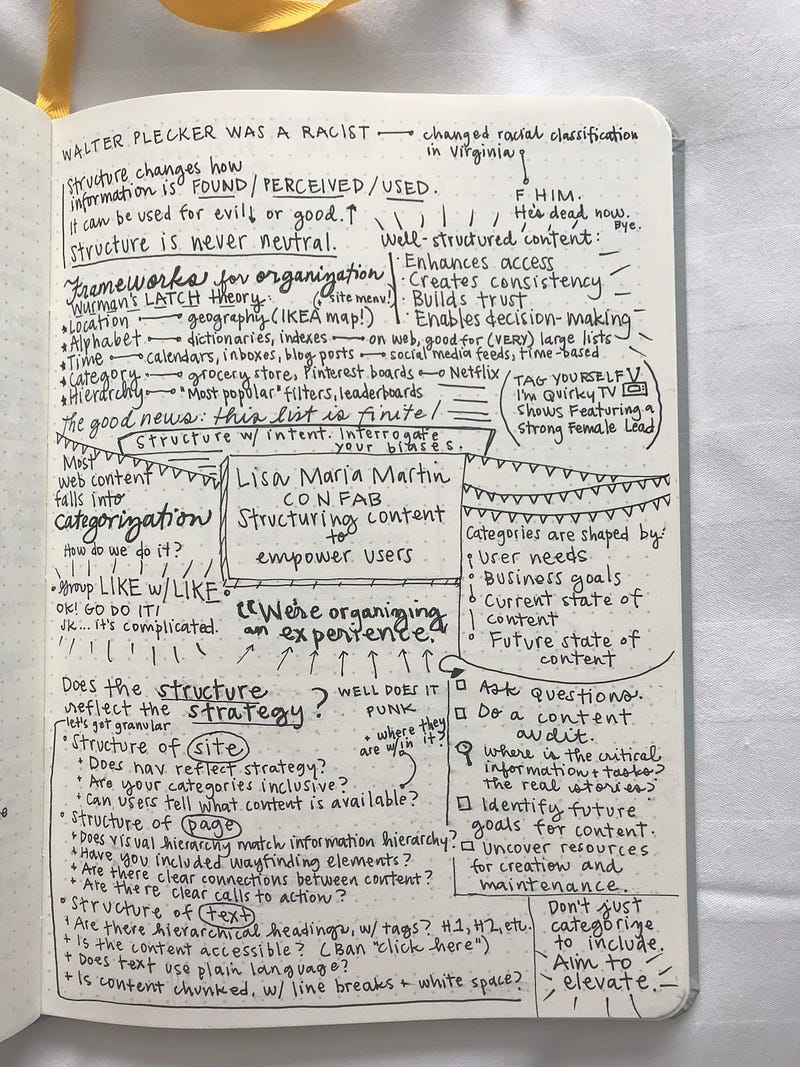 WALTER PLECKER WAS A RACIST
changed racial classification
in Virginia
F HIM.
He's dead now.
Bye.
Structure changes how
information is FOUND / PERCEIVED / USED.
It can be used for evil↓ or good.↑
Structure is never neutral.
Well-structured content:
· Enhances access
· Creates consistency
· Builds trust
· Enables decision-making
Frameworks for organization
Wurman's LATCH theory:
(+ site menu!)
* Location — geography (IKEA map!)
* Alphabet — dictionaries, indexes — on web, good for (VERY) large lists
* Time — calendars, inboxes, blog posts — social media feeds, time-based
* Category — grocery store, Pinterest boards — Netflix
* Hierarchy — "Most popular" filters, leaderboards
TAG YOURSELF
I'm Quirky TV
Shows Featuring a
Strong Female Lead
The good news: this list is finite!
Structure w/ intent. Interrogate
your biases.
Most
web content
falls into
categorization
How do we do it?
· Group LIKE w/ LIKE
OK! GO DO IT!
JK... it's complicated.
Lisa Maria Martin
CONFAB
Structuring content
to
empower users
"We're organizing
an experience."
Categories are shaped by:
User needs
Business goals
Current state of
content
Future state of
content
Does the structure
reflect the strategy?
WELL DOES IT
PUNK
let's get granular
· Structure of site
+ Does nav reflect strategy?
+ Are your categories inclusive?
+ Can users tell what content is available?
+ where they
are w/in it?
· Structure of page
+ Does visual hierarchy match information hierarchy?
+ Have you included wayfinding elements?
+ Are there clear connections between content?
+ Are there clear calls to action?
· Structure of text
+ Are there hierarchical headings, w/ tags? H1, H2, etc.
+ Is the content accessible? (Ban "click here")
+ Does text use plain language?
+ Is content chunked, w/ line breaks + white space?
□ Ask questions.
□ Do a content
audit.
Where is the critical
information + tasks?
The real stories?
□ Identify future
goals for content.
□ Uncover resources
for creation and
maintenance.
Don't just
categorize
to include.
Aim to
elevate.